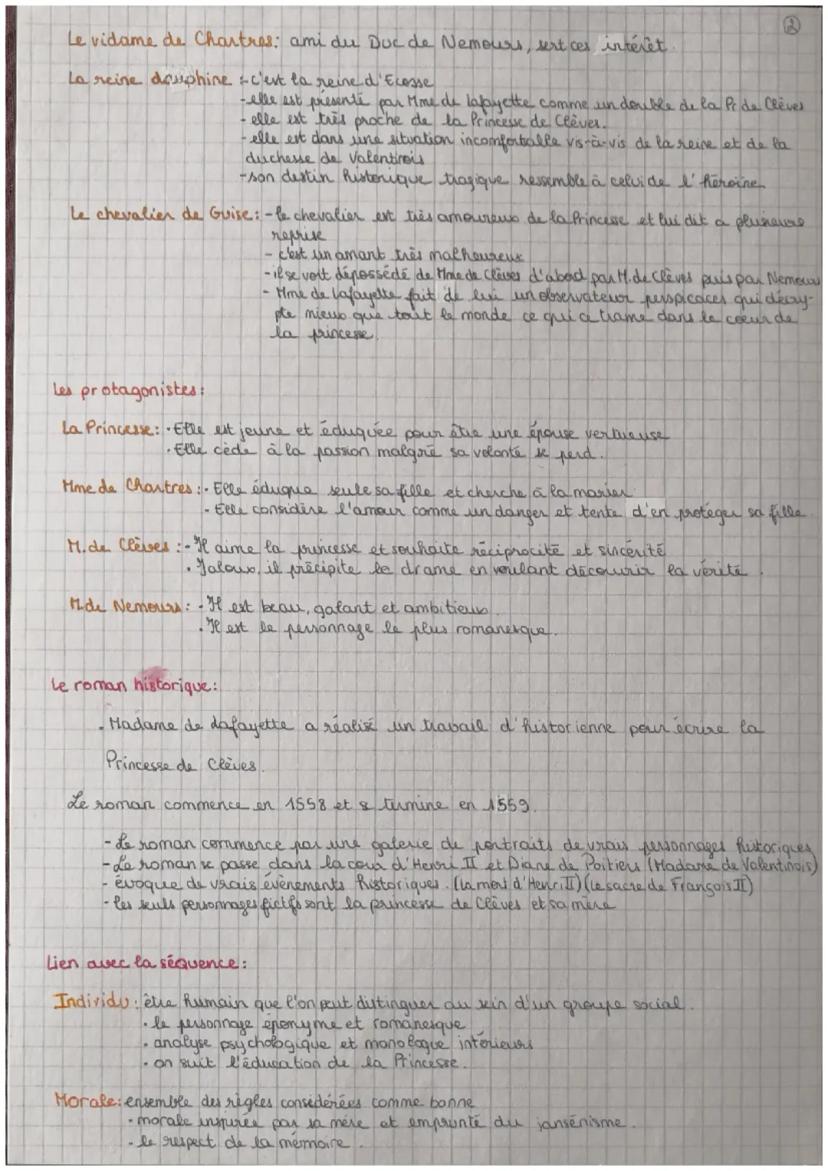 2
Le vidame de Chartres: ami du Duc de Nemours, sert ces intérêt.
La reine dauphine :- c'est la reine d'Ecosse
- elle est présenté par Mme de lafayette comme un double de la Pr de Clèves
- elle est très proche de la Princesse de Clèves.
- elle est dans une situation incomfortable vis-à-vis de la reine et de la
duchesse de Valentinois
- son destin historique tragique ressemble à celui de l'héroïne.
Le chevalier de Guise: - le chevalier est très amoureux de la Princesse et lui dit a plusieurs
reprise
- c'est un amant très malheureux
- il se voit dépossédé de Mme de Clèves d'abord par M. de Clèves puis par Nemours
- Mme de lafayette fait de lui un observateur perspicaces qui décry-
pte mieux que tout le monde ce qui ce trame dans le coeur de
la princesse.
Les protagonistes:
La Princesse: · Elle est jeune et éduquée pour être une épouse vertueuse
· Elle cède à la passion malgré sa volonté se perd.
Mme de Chartres :· Elle éduqua seule sa fille et cherche à la marier
- Elle considère l'amour comme un danger et tente d'en protéger sa fille.
M. de Clèves :- Il aime la princesse et souhaite réciprocité et sincérité
· Jaloux, il précipite le drame en voulant découvrir la vérité.
M. de Nemours: - Il est beau, galant et ambitieux.
· Il est le personnage le plus romanesque.
Le roman historique:
. Madame de Lafayette a réalisé un travail d'historienne pour écrire la
Princesse de Clèves.
Le roman commence en 1558 et se termine en 1559.
- Le roman commence par une galerie de portraits de vrais personnages historiques
- Le roman se passe dans la cour d'Henri II et Diane de Poitiers (Madame de Valentinois)
- évoque de vrais évènements historiques. (la mort d'Henri II) (le sacre de François II)
- les seuls personnages fictifs sont la princesse de Clèves et sa mère
Lien avec la séquence:
Individu: être humain que l'on peut distinguer au sein d'un groupe social.
· le personnage éponyme et romanesque
· analyse psychologique et monologue intérieurs
· on suit l'éducation de la Princesse.
Morale: ensemble des règles considérées comme bonne
- morale inspirée par sa mère et emprunté du jansénisme.
- le respect de la mémoire.